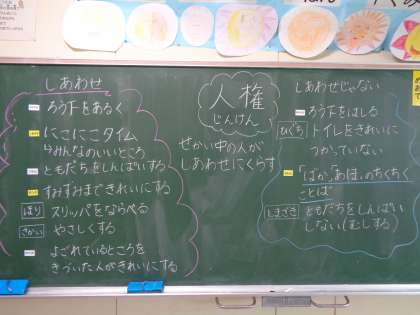 しあわせ
ろう下をあるく
にこにこタイム
↳みんなのいいところ
ともだちをしんぱいする
すみすみまできれいにする
ほり スリッパをならべる
さかい やさしくする
よごれているところを
きづいた人がきれいにする
人権
じんけん
せかい中の人が
しあわせにくらす
しあわせじゃない
ろう下をはしる
ひぐち トイレをきれいに
つかっていない
「ばか」「あほ」のちくちく
ことば
しまざき ともだちをしんぱい
しない(むしする)